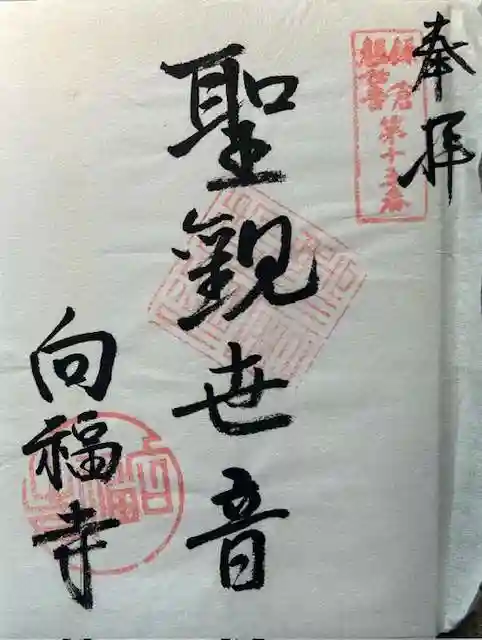 奉拝
鎌倉
観音 第十五番
聖観世音
向福寺